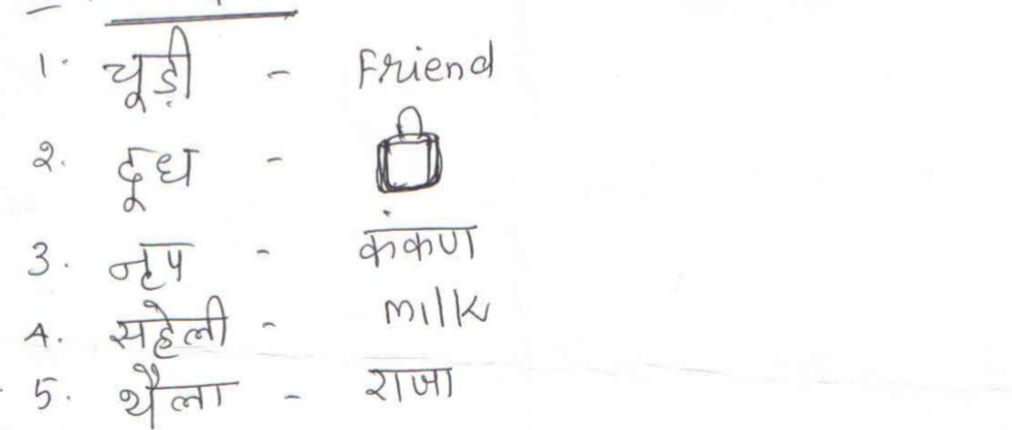 1. चूड़ी - Friend
2. दूध -
3. नृप - कंकण
4. सहेली - milk
5. थैला - राजा